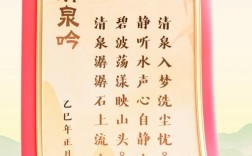 泉吟
乙巳年正月
清泉潺潺石上流，
碧波荡漾映山头。
静听水声心自静，
清泉入梦洗尘忧。